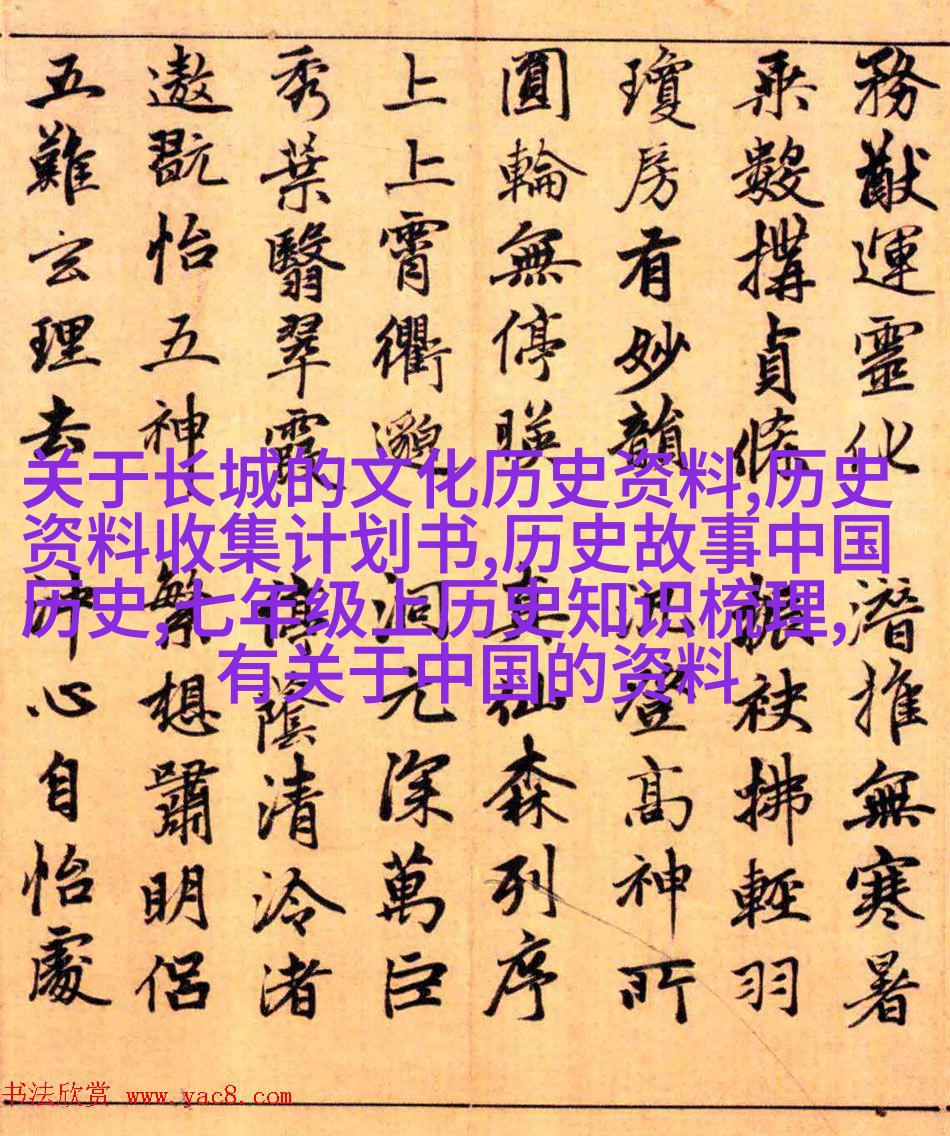 務猷運靈化潛推無寒暑
乘數搆貞條振袂拂輕羽
瓊房有妙韻登高神所
圓輪無停暎真仙森列序
上上霄衢邈洞元深萬巨
秀葉翳翠霞蔭清泠渚
遨翫怡五神繁想嘯明侶
五難玄理去沖心自怡處
关于长城的文化历史资料,历史
资料收集计划书,历史故事中国
历史,七年级上历史知识梳理,
有关于中国的资料
书法欣赏 www.yac8.com